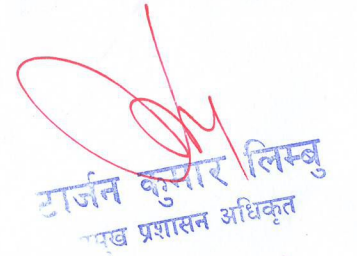 टार्जन कुमार लिम्बु
प्रमुख प्रशासन अधिकृत